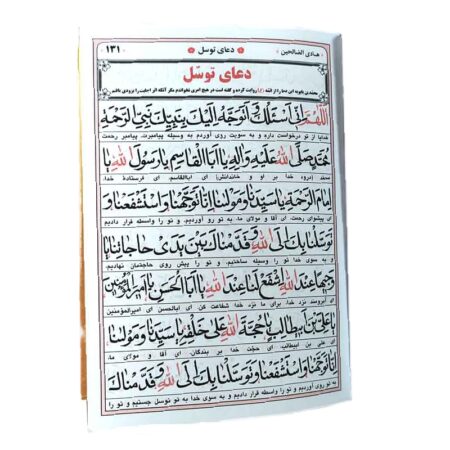 هادی الصالحین
دعای توسل
۱۳۱
دعای توسّل
محمد بن بابویه این دعا را از ائمه (ع) روایت کرده و گفته است در هیچ امری نخواندم مگر آنکه اثر اجابت را بزودی یافتم
اَللّهُمَّ اِنّی اَسْئَلُکَ وَ اَتَوَجَّهُ اِلَیْکَ بِنَبِیِّکَ نَبِیِّ الرَّحْمَةِ
خدایا از تو درخواست دارم و به سویت روی آوردم به وسیله پیامبرت، پیامبر رحمت
مُحَمَّدٍ صَلَّی اللّهُ عَلَیْهِ وَ الِهِ یا اَبَا الْقاسِمِ یا رَسُولَ اللّهِ یا
محمد (درود خدا بر او و خاندانش) ای اباالقاسم، ای فرستادهٔ خدا،
اِمامَ الرَّحْمَةِ یا سَیِّدَنا وَ مَوْلینا اِنّا تَوَجَّهْنا وَ اسْتَشْفَعْنا وَ
ای پیشوای رحمت، ای آقا و مولای ما، به تو رو آوردیم، و تو را واسطه قرار دادیم
تَوَسَّلْنا بِکَ اِلَی اللّهِ وَ قَدَّمْناکَ بَیْنَ یَدَیْ حاجاتِنا یا
و به سوی خدا تو را وسیله ساختیم، و تو را پیش روی حاجتمان نهادیم،
وَجیهاً عِنْدَ اللّهِ اِشْفَعْ لَنا عِنْدَ اللّهِ یا اَبَا الْحَسَنِ یا اَمیرَ الْمُؤْمِنینَ
ای آبرومند نزد خدا، برای ما نزد خدا شفاعت کن. ای اباالحسن ای امیرالمؤمنین
یا عَلِیَّ بْنَ اَبیطالِبٍ یا حُجَّةَ اللّهِ عَلی خَلْقِهِ یا سَیِّدَنا وَ مَوْلینا
ای علی بن ابیطالب، ای حجّت خدا بر بندگان، ای آقا و مولای ما،
اِنّا تَوَجَّهْنا وَ اسْتَشْفَعْنا وَ تَوَسَّلْنا بِکَ اِلَی اللّهِ وَ قَدَّمْناکَ
به تو روی آوردیم و تو را واسطه قرار دادیم و به سوی خدا به تو توسل جستیم و تو را